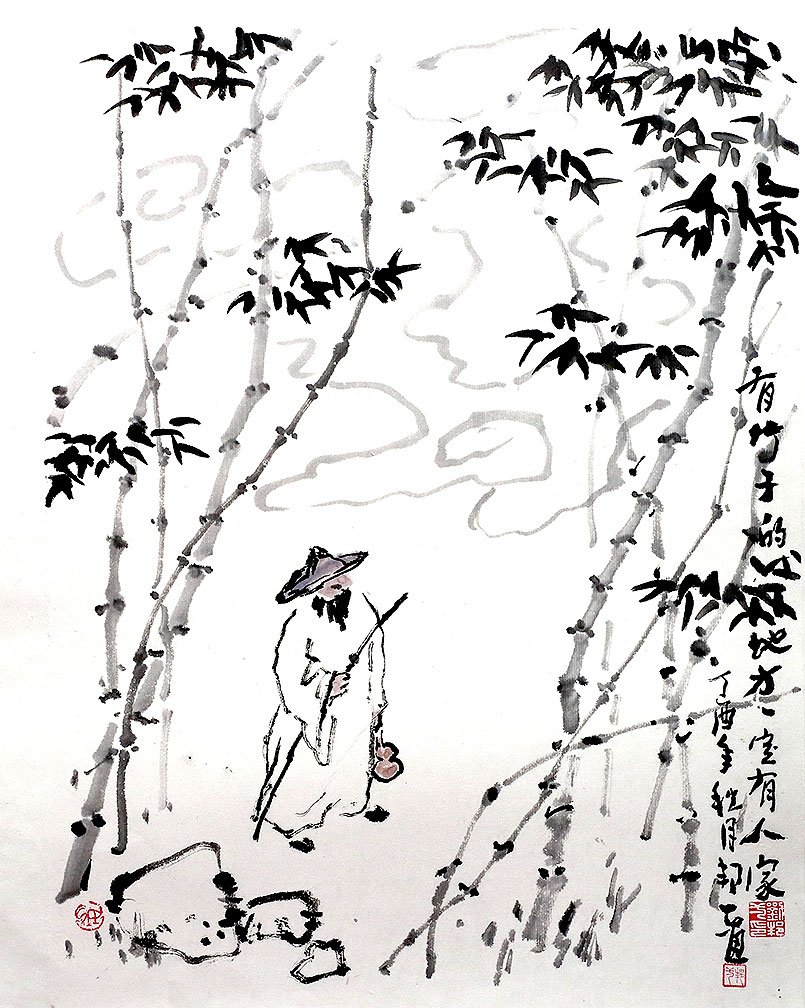 有竹子的地方一定有人家
丁酉年秋月